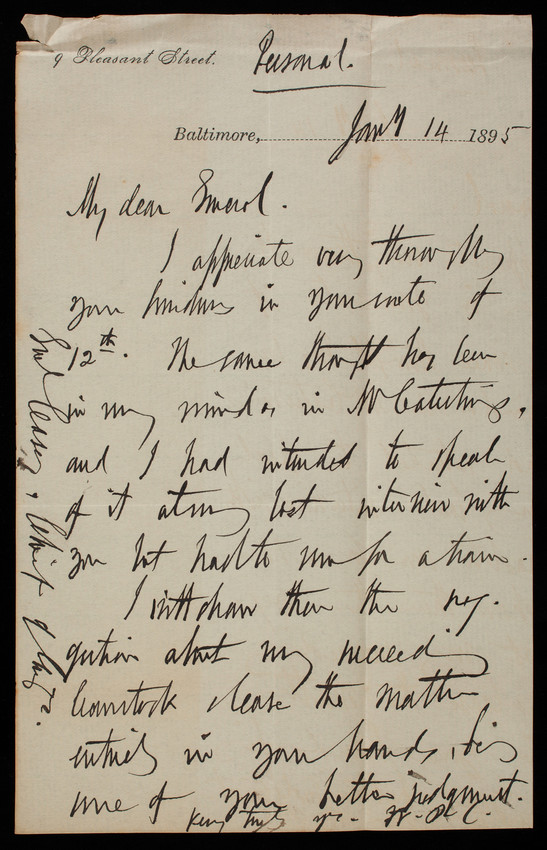 9 Pleasant Street.
Personal.
Baltimore, Jany 14 1895
My dear General.
I appreciate very thoroughly
your kindness in your note of
12th. The same thought has been
in my mind as in Mr
and I had intended to speak
of it at my last interview with
you but had to run for a train.
I withdraw then the sug-
gestion about my succeeding
Comstock & leave the matter
entirely in your hands, being
sure of your better judgment.
Very truly yrs. W. P. C.
Genl Casey, Chief of Engrs.